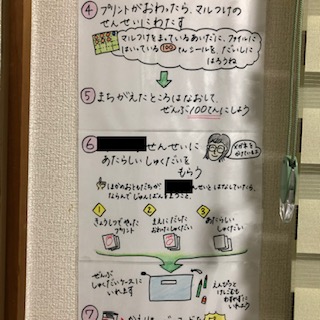 ④ プリントがおわったら、マルつけの
せんせいにわたす
マルつけをまっているあいだに、ファイルに
はいっている100てんシールを、だいしに
はろうね
⑤ まちがえたところはなおして、
ぜんぶ100てんにしよう
⑥ せんせいに
あたらしいしゅくだいを
もらう
メガネを
かけているよ
ほかのおともだちが せんせいとはなしていたら、
ならんでじゅんばんをまつこと。
1 きょうしつでやった
プリント
2 まえにだした
おわったしゅくだい
3 あたらしい
しゅくだい
ぜんぶ
しゅくだいケースに
いれます
えんぴつと
けしごむも
わすれずに
いれよう
⑦